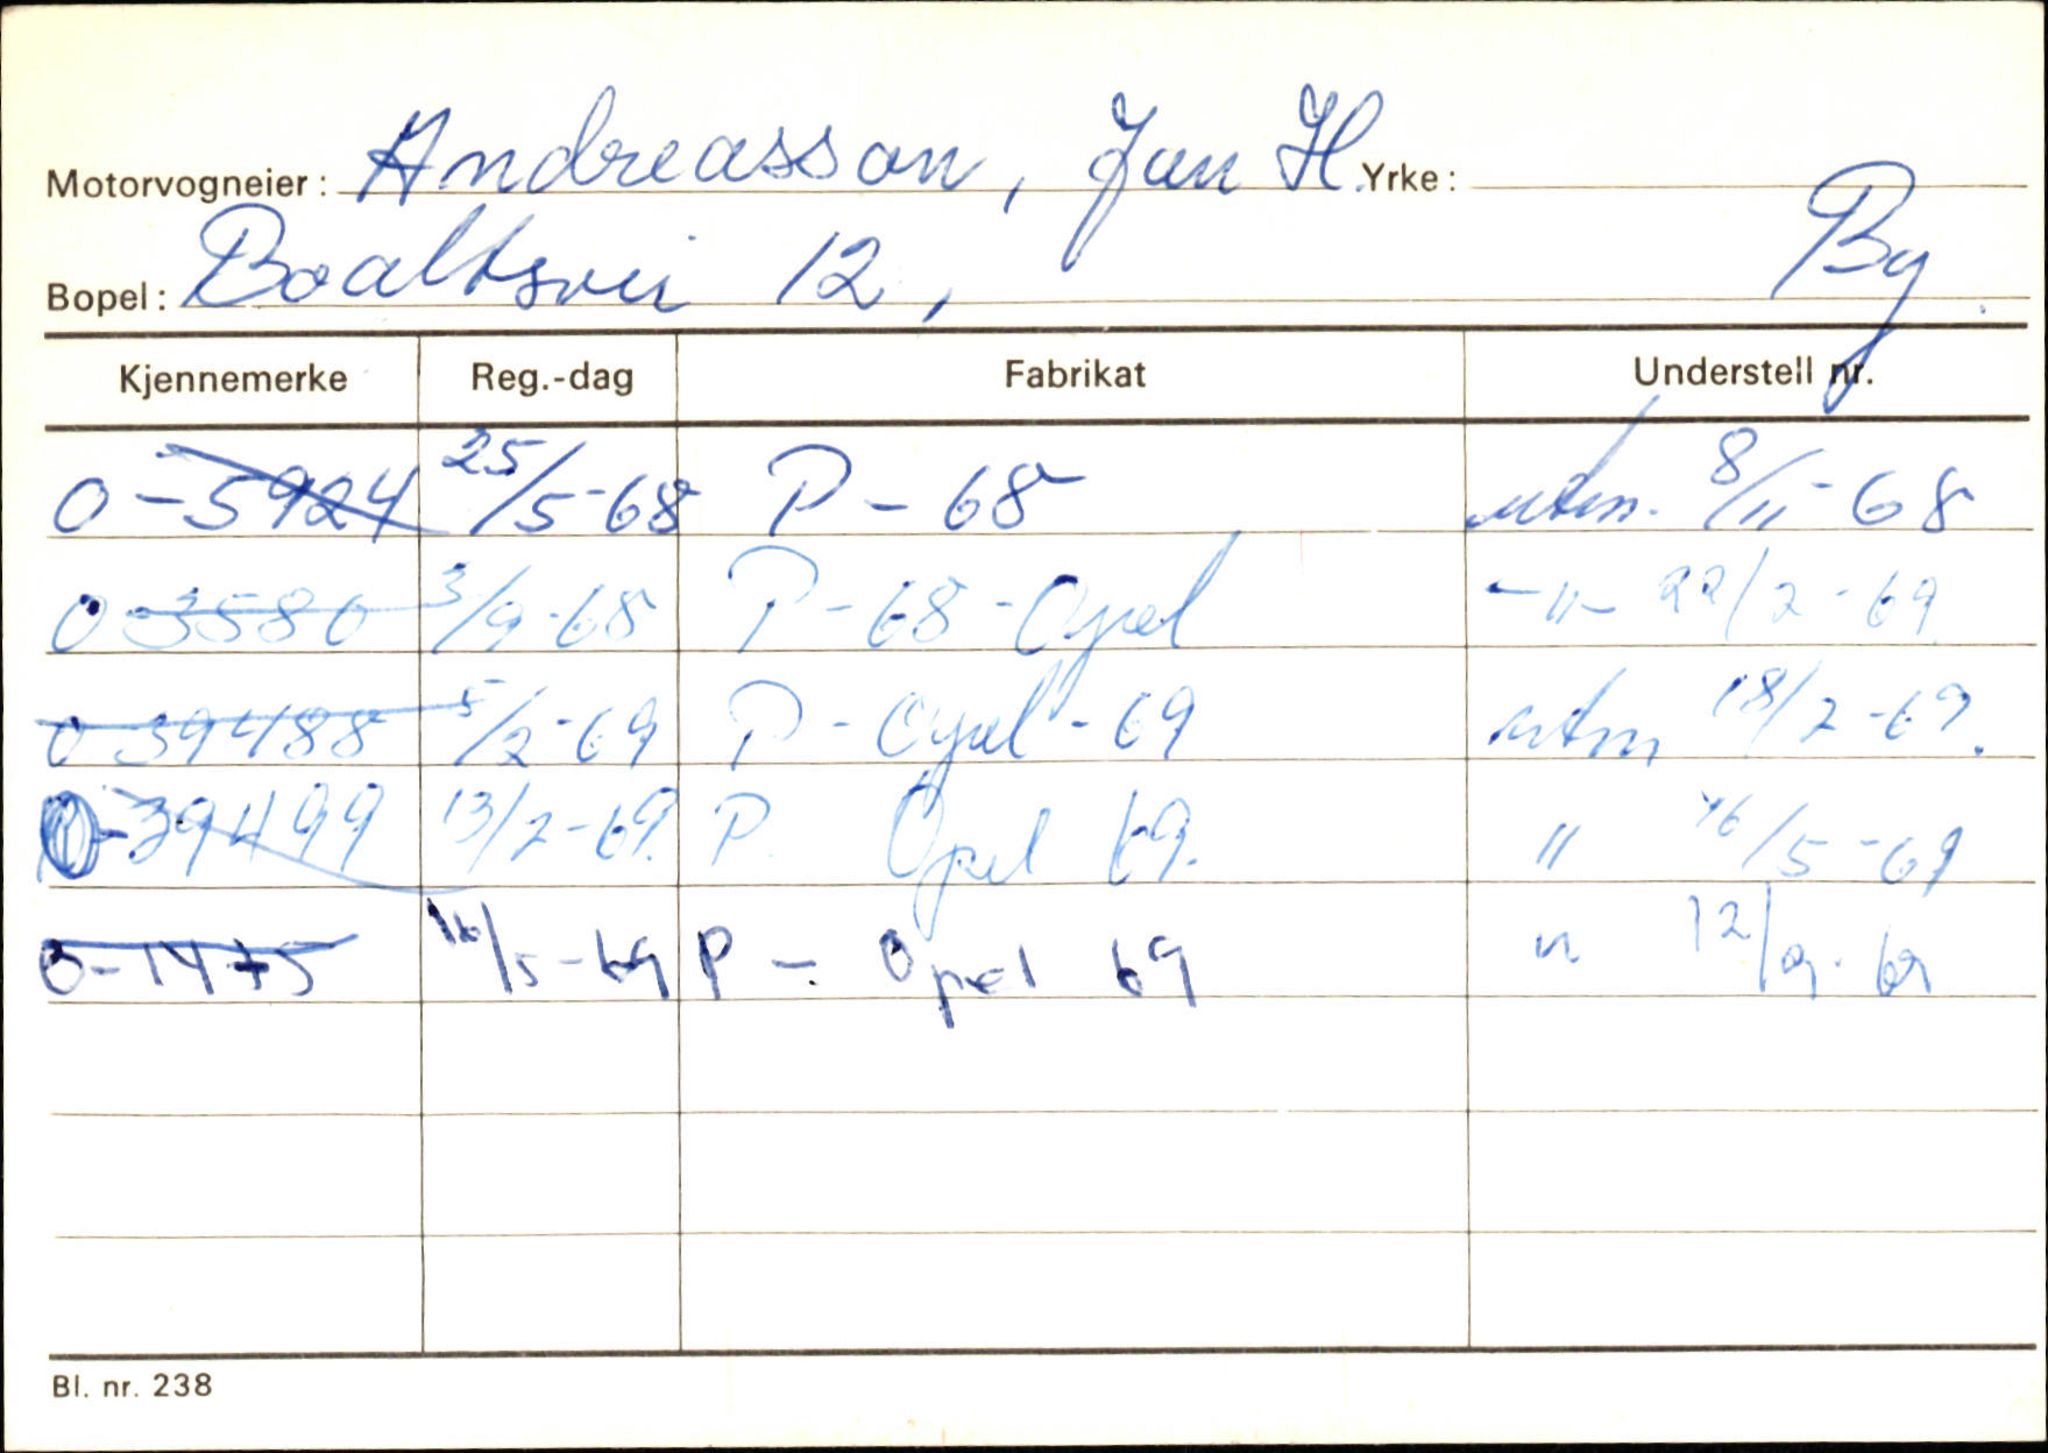 Motorvogneier: Andreasson, Jan H. Yrke:
Bopel: Boaltsvei 12, By.
Kjennemerke Reg.-dag Fabrikat Understell nr.
O-5924 25/5-68 P-68 utm. 8/11-68
O-3580 3/9-68 P-68-Opel -"- 22/2-69
O-39488 5/2-69 P-Opel-69 utm 18/2-69.
O-39499 13/2-69. P. Opel 69. " 16/5-69
O-1475 16/5-69 P-Opel 69 " 12/9-69
Bl. nr. 238